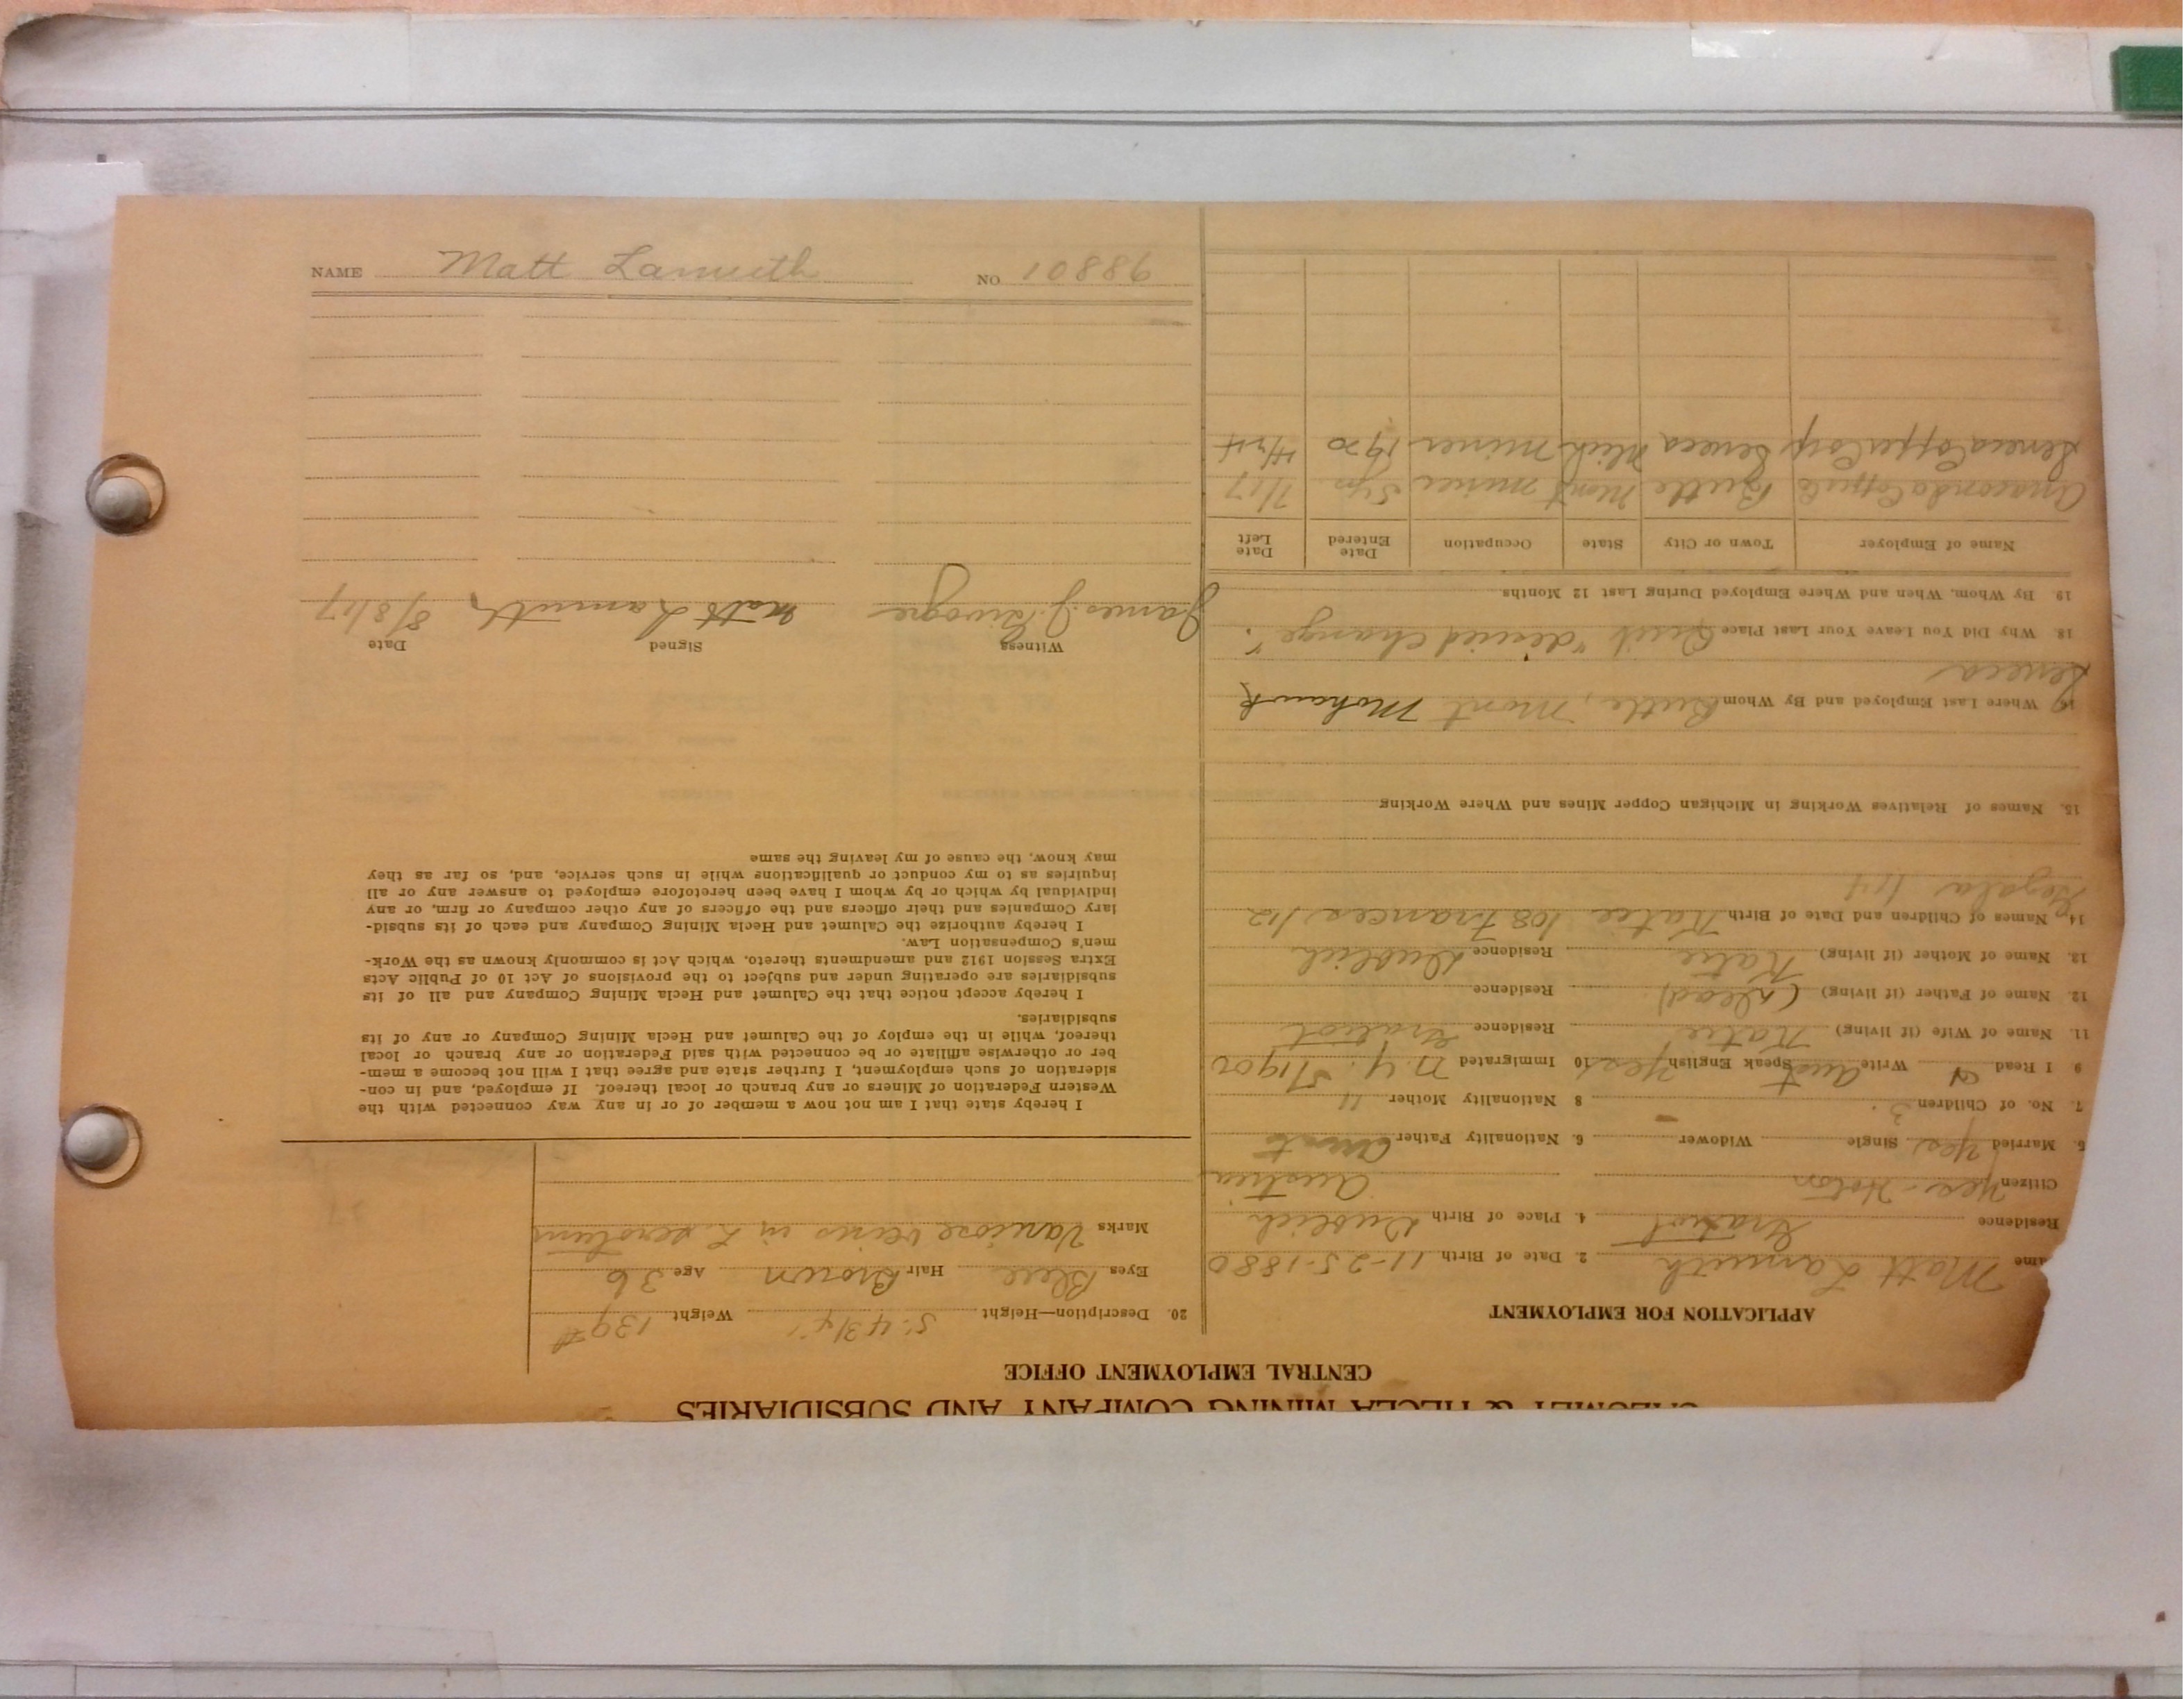 CALUMET & HECLA MINING COMPANY AND SUBSIDIARIES
CENTRAL EMPLOYMENT OFFICE
APPLICATION FOR EMPLOYMENT
Name Matt Lamuth 2. Date of Birth 11-25-1880
Residence Gratiot 4. Place of Birth Dublich
Citizen Yes - Hoton Austria
5. Married Yes Single Widower - 6. Nationality Father Aust
7. No. of Children 3. 8 Nationality Mother 11
9 I Read Write Aust Speak English Yes 10 Immigrated N.Y. 5/1900
11. Name of Wife (if living) Katie Residence Gratiot
12. Name of Father (if living) (Dead) Residence
13. Name of Mother (if living) Katie Residence Dublich
14. Names of Children and Date of Birth Katie 1/08 Frances 1/12
1/14
15. Names of Relatives Working in Michigan Copper Mines and Where Working
Where Last Employed and By Whom Butte, Mont Mohawk
Seneca
18. Why Did You Leave Your Last Place Quit "desired change".
19 By Whom, When and Where Employed During Last 12 Months.
Name of Employer Town or City State Occupation Date Entered Date Left
Anaconda Copper Co Butte Mont miner 5 yrs 7/17
Seneca Copper Corp Seneca Mich miner 1920
20. Description—Height 5' 4 3/4" Weight 139#
Eyes Blue Hair Brown Age 36
Marks Varicose veins in L. scrotum
I hereby state that I am not now a member of or in any way connected with the
Western Federation of Miners or any branch or local thereof. If employed, and in con-
sideration of such employment, I further state and agree that I will not become a mem-
ber or otherwise affiliate or be connected with said Federation or any branch or local
thereof, while in the employ of the Calumet and Hecla Mining Company or any of its
subsidiaries.
I hereby accept notice that the Calumet and Hecla Mining Company and all of its
subsidiaries are operating under and subject to the provisions of Act 10 of Public Acts
Extra Session 1912 and amendments thereto, which Act is commonly known as the Work-
men's Compensation Law.
I hereby authorize the Calumet and Hecla Mining Company and each of its subsid-
iary Companies and their officers and the officers of any other company or firm, or any
individual by which or by whom I have been heretofore employed to answer any or all
inquiries as to my conduct or qualifications while in such service, and, so far as they
may know, the cause of my leaving the same
Witness Signed Date
James J. Matt Lamuth 8/8/17
NAME Matt Lamuth NO 10886